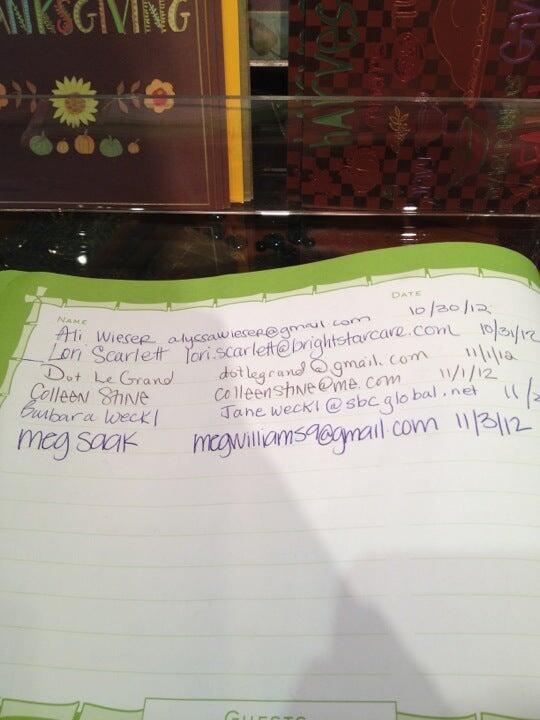 THANKSGIVING
harvest
NAME
DATE
Ali Wieser alyssawieser@gmail.com 10/30/12
Lori Scarlett lori.scarlett@brightstarcare.com 10/31/12
Dot Le Grand dotlegrand@gmail.com 11/1/12
Colleen Stine colleenstine@me.com 11/1/12
Barbara Weckl Janeweckl@sbcglobal.net 11/2
meg saak megwilliams9@gmail.com 11/3/12
GUESTS